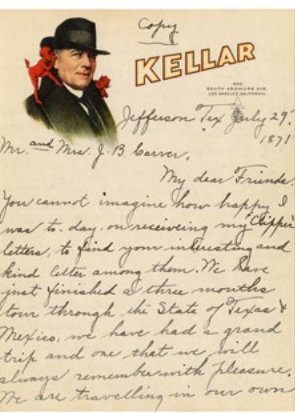 Copy
KELLAR
SOUTH ARDMORE AVE.
LOS ANGELES, CALIFORNIA.
Jefferson Tex July 29.
1871
Mr. and Mrs. J. B. Carver.
My dear Friends.
You cannot imagine how happy I
was to-day on receiving my
letters, to find your interesting and
kind letter among them. We have
just finished a three months
tour through the State of Texas &
Mexico, we have had a grand
trip and one that we will
always remember with pleasure.
We are travelling in our own